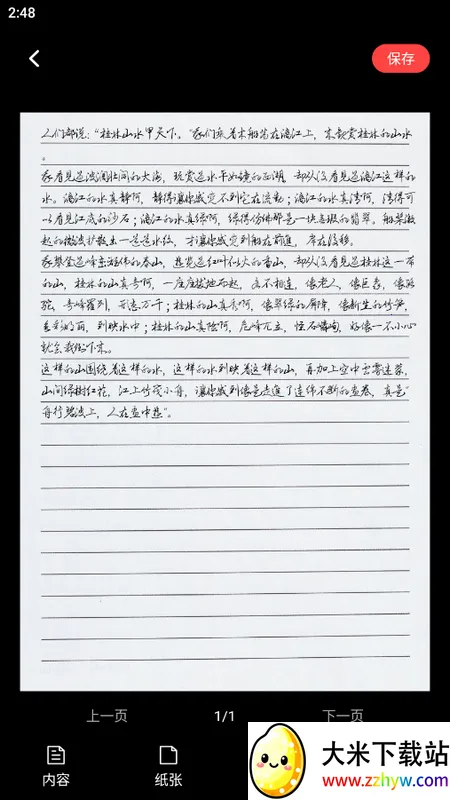 2:48
保存
人们都说："桂林山水甲天下。"我们乘着木船荡在漓江上，来观赏桂林的山水
。
我看见过波澜壮阔的大海，玩赏过水平如镜的西湖，却从没看见过漓江这样的
水。漓江的水真静啊，静得让你感觉不到它在流动；漓江的水真清啊，清得可
以看见江底的沙石；漓江的水真绿啊，绿得仿佛那是一块无瑕的翡翠。船桨激
起的微波扩散出一道道水纹，才让你感觉到船在前进，岸在后移。
我攀登过峰峦雄伟的泰山，游览过红叶似火的香山，却从没看见过桂林这一带
的山，桂林的山真奇啊，一座座拔地而起，各不相连，像老人，像巨象，像骆
驼，奇峰罗列，形态万千；桂林的山真秀啊，像翠绿的屏障，像新生的竹笋，
色彩明丽，倒映水中；桂林的山真险啊，危峰兀立，怪石嶙峋，好像一不小心
就会栽倒下来。
这样的山围绕着这样的水，这样的水倒映着这样的山，再加上空中云雾迷蒙，
山间绿树红花，江上竹筏小舟，让你感到像是走进了连绵不断的画卷，真是"
舟行碧波上，人在画中游"。
上一页
1/1
下一页
内容
纸张
大米下载站
www.zzhyw.com